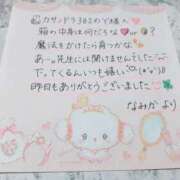 カサンドラ302ので様へ
箱の中身は何だろな♡or💣?
魔法をかけたら育つかな
あ。先生には開けませんでした
下。てくるんいつも嬉しい(*°∀°)♡
昨日もありがとうございました
なみか より